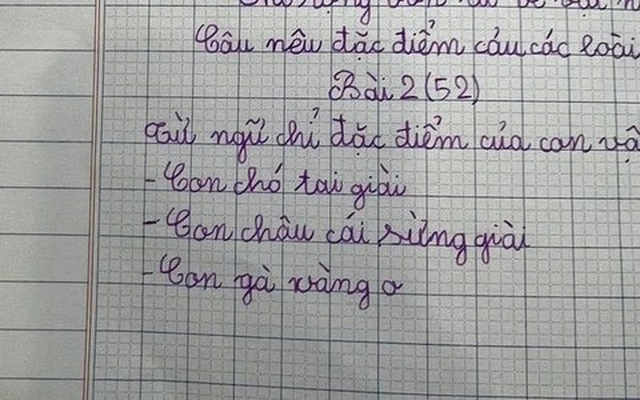 Câu nêu đặc điểm cảu các loài
Bài 2 (52)
Từ ngữ chỉ đặc điểm của con vậ
- Con chó tai giài
- Con châu cái sừng giài
- Con gà vàng o